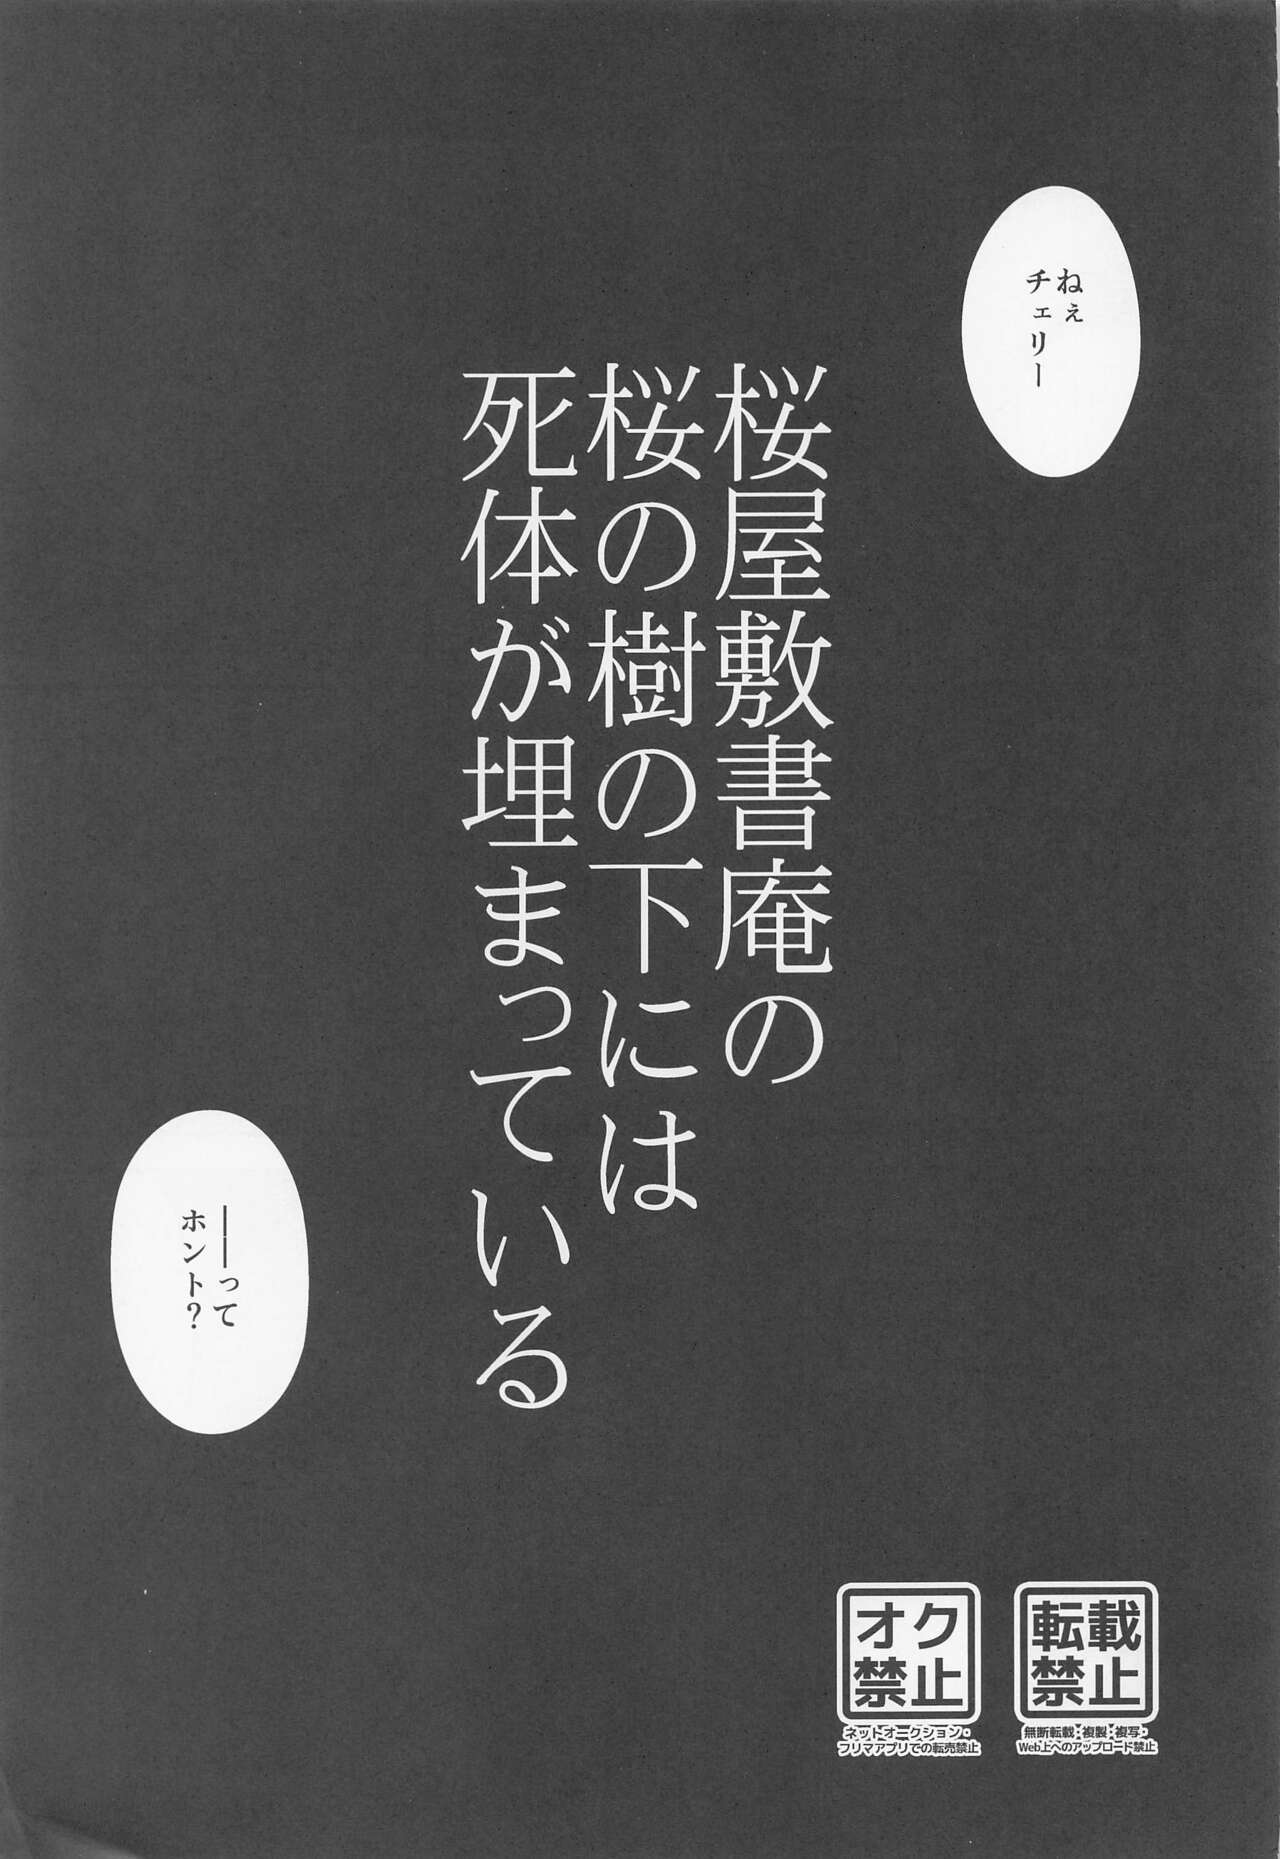 ねぇ
チェリー
桜屋敷書庵の
桜の樹の下には
死体が埋まっている
――って
ホント?
転載
禁止
無断転載・複製・複写・
Web上へのアップロード禁止
オク
禁止
ネットオークション・
フリマアプリでの転売禁止